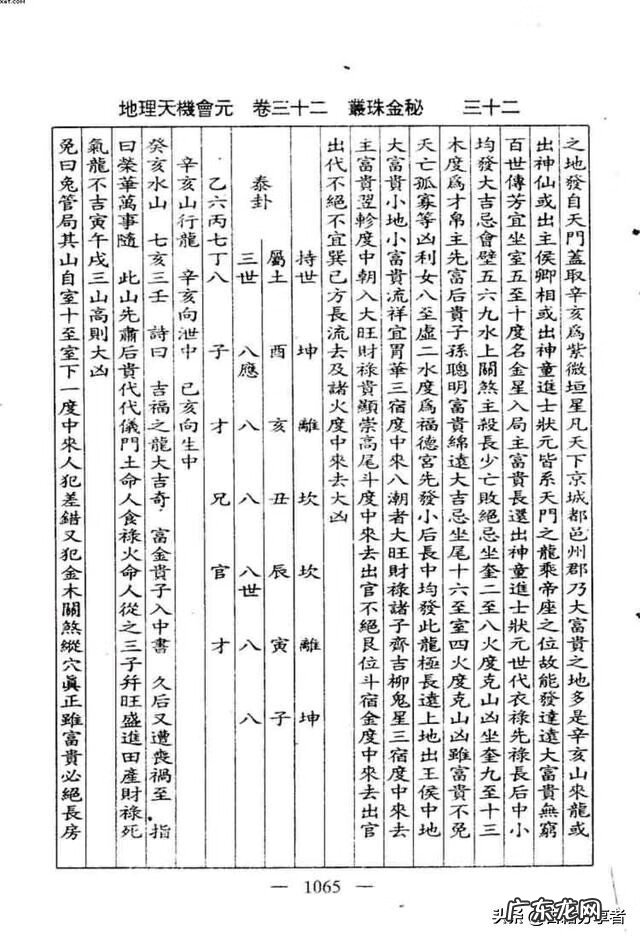 地理天機會元　卷三十二　叢珠金秘　三十二
之地發自天門蓋取辛亥爲紫微垣星凡天下京城都邑州郡乃大富貴之地多是辛亥山來龍或
出神仙或出王侯卿相或出神童進士狀元皆系天門之龍乘帝座之位故能發達遠大富貴無窮
百世傳芳宜坐室五至十度名金星入局主富貴長還出神童進士狀元世代衣祿先祿長后中小
均發大吉忌會壁五六九水上關煞主殺長少亡敗絕忌坐奎二至八火度克山凶坐奎九至十三
木度爲才帛主先富后貴子孫聰明富貴綿遠大吉忌坐尾十六至室四火度克山凶雖富貴不免
夭亡孤寡等凶利女八至虛二水度爲福德宮先發小后長中均發此龍極長遠上地出王侯中地
大富貴小地小富貴流祥宜胃華三宿度中來八潮者大旺財祿諸子齊吉柳鬼星三宿度中來去
主富貴翌軫度中朝入大旺財祿貴顯崇高尾斗度中來去出官不絕艮位斗宿金度中來去出官
出代不絕不宜巽己方長流去及諸火度中來去大凶
持世　坤　離　坎　坎　離　坤
屬土　酉　亥　丑　辰　寅　子
泰卦　三世　八應　八　八　八世　八　八
乙六丙七丁八　子　才　兄　官　才
辛亥山行龍　辛亥向泄中　己亥向生中
癸亥水山　七亥三壬　詩曰　吉福之龍大吉奇　富金貴子入中書　久后又遭喪禍至　指
曰榮華萬事隨　此山先肅后貴代代儀門土命人食祿火命人從之三子幷旺盛進田產財祿死
氣龍不吉寅午戌三山高則大凶
兔曰兔管局其山自室十至室下一度中來人犯差錯又犯金木關煞縱穴眞正雖富貴必絕長房
— 1065 —